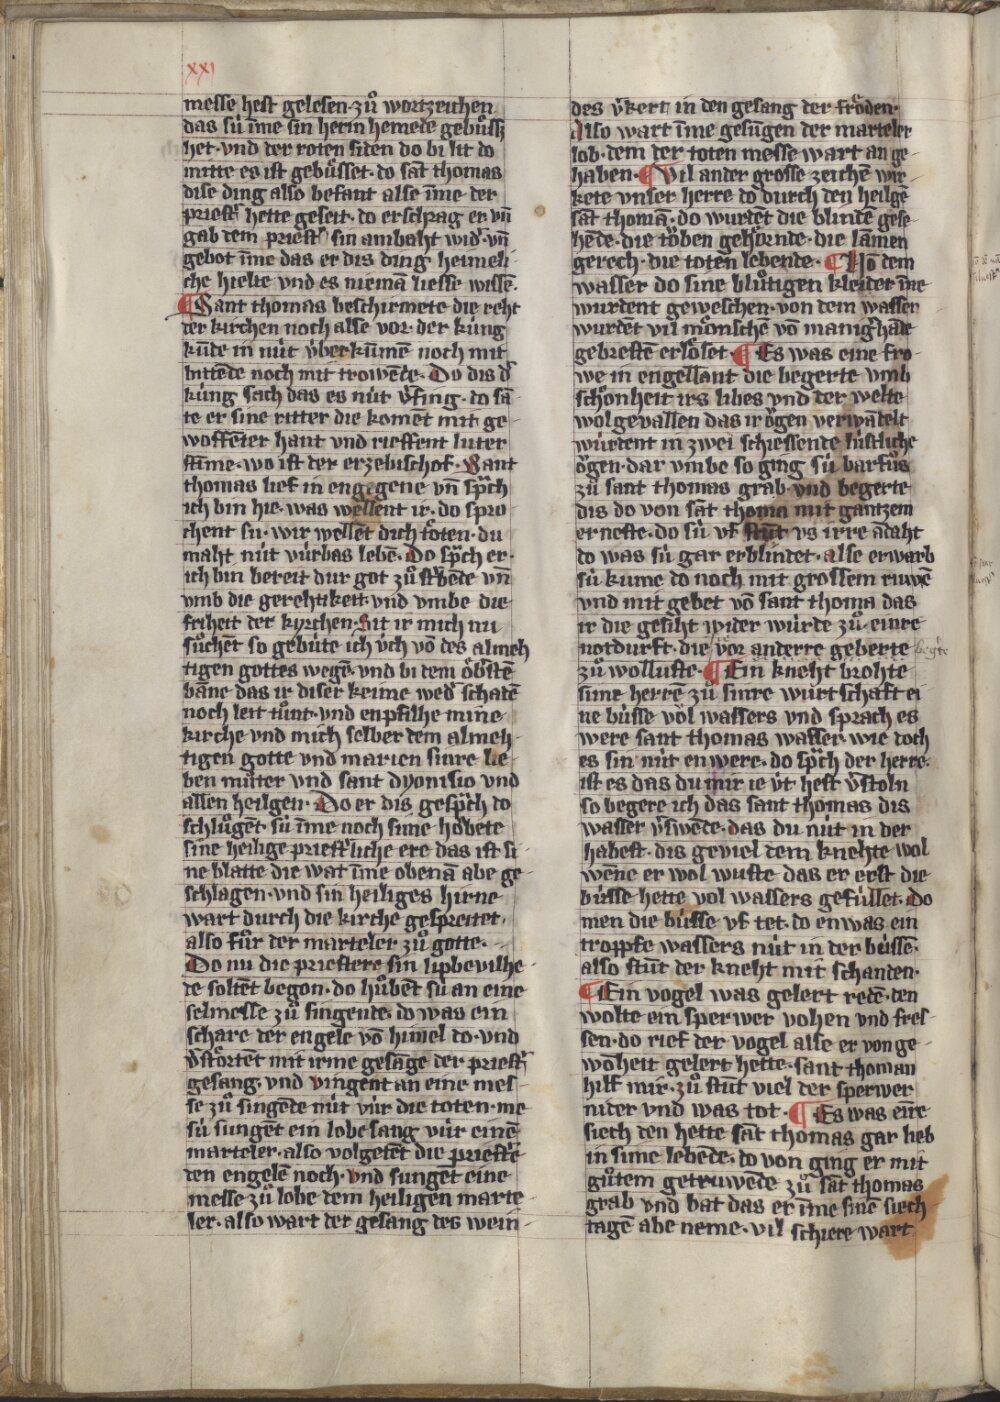 xxi
messe hest gelesen· zuͦ wortzeichen
das sú im̄e sin herin hemede gebuͤsß
het· vnd der roten siden do bi lit do
mitte es ist gebuͤsset· do sāt thomas
dise ding also befant alse im̄e der
priestˀ hette geseit· do erschrag er vn̄
gab dem priestˀ sin ambaht widˀ· vn̄
gebot im̄e das er dis ding heimeli
che hielte vnd es niemā liesse wissē·
¶ Sant thomas beschirmete die reht
der kirchen noch alse vor· der kúng
kūde in nút v́berkumē noch mit
bittēde noch mit trowēde· Do dis dˀ
kúng sach das es nút vˀfing· do sā
te er sine ritter die komēt mit ge
woffēter hant vnd rieffent luter
stīme· wo ist der erzebischof· Sant
thomas lief in engegene vn̄ sp̄ch
ich bin hie· was wellent ir· do spro
chent sú· wir wellēt dich toͤten· du
maht nút vúrbas lebē· Do sp̄ch er·
ich bin bereit dur got zuͦ stˀbēde vn̄
vmb die gerehtikeit· vnd vmbe die
friheit der kyrchen· Sit ir mich nu
suͦchēt so gebúte ich v́ch vō des almeh
tigen gottes wegē· vnd bi dem oͤbstē
bāne das ir diser keime wedˀ schadē
noch leit tuͦnt· vnd enpfilhe mine
kirche vnd mich selber dem almeh
tigen gotte vnd marien sinre lie
ben muͦter vnd sant dyonisio vnd
allen heilgen· Do er dis gesp̄ch do
schluͦgēt sú im̄e noch sime hoͤbete
sine heilige priestˀliche ere das ist si
ne blatte die wat im̄e obenā abe ge
schlagen· vnd sin heiliges hirne
wart durch die kirche gespreitet·
also fuͦr der marteler zuͦ gotte·
Do nu die priestere sin lipbevilhe
de soltēt begon· do huͦbēt sú an eine
selmesse zuͦ singende· do was ein
schare der engele vō himel do· vnd
vˀstortēt mit irme gesāge der priestˀ
gesang· vnd vingent an eine mes
se zuͦ singēde nút vúr die toten· me
sú sungēt ein lobesang vúr einē
marteler· also volgetēt die priestˀe
den engelē noch· vnd sungēt eine
messe zuͦ lobe dem heiligen marte
ler· also wart der gesang des wein
des vˀkert in den gesang der froͤden·
Also wart im̄e gesungen der marteler
lob· dem der toten messe wart an ge
haben· ¶ Vil ander grosse zeichē wir
kete vnser herre do durch den heilgē
sāt thomā· do wurdēt die blindē gese
hēde· die toͤben gehoͤrnde· die lāmen
gerech· die totēn lebende· ¶ Vō dem
wasser do sine bluͦtigen kleider im̄e
wurdent geweschen· von dem wasser
wurdēt vil moͤnschē vō manigˀhāde
gebrestē erloͤset· ¶ Es was eine fro
we in engellant die begerte vmb
schoͤnheit irs libes vnd der welte
wolgevallen das ir oͤgen verwādelt
wúrdent in zwei schiessende lústliche
oͤgen· dar vmbe so ging sú barfuͦs
zuͦ sant thomas grab· vnd begerte
dis do von sāt thoma mit gantzem
erneste· do sú vf stuͦt vs irre ādaht
do was sú gar erblindet· alse erwarb
sú kume do noch mit grossem ruwē
vnd mit gebet vō sant thoma das
ir die gesiht wider wúrde zuͦ einre
notdurft· die vor anderre geberte
zuͦ wolluste· ¶ Ein kneht brohte
sime herrē zuͦ sinre wurtschaft ei
ne bússe vol wassers vnd sprach es
were sant thomas wasser· wie doch
es sin nút enwere· do sp̄ch der herre·
ist es das du mir ie v́t hest vˀstoln
so begere ich das sant thomas dis
wasser vˀswēde· das du nút in der
habest· dis geviel dem knehte wol
wēne er wol wuste das er erst die
bússe hette vol wassers gefúllet· Do
men die bússe vf tet· do enwas ein
troppfe wassers nút in der bússe·
also stuͦt der kneht mit schanden·
¶ Ein vogel was gelert redē· den
wolte ein sperwer vohen vnd fres
sen· do rief der vogel alse er von ge
wonheit gelert hette· sant thoman
hilf mir· zuͦ stuͦt viel der sperwer
nider vnd was tot· ¶ Es was eine
siech den hette sāt thomas gar lieb
in sime lebēde· do von ging er mit
guͦtem getruwēde zuͦ sāt thomas
grab vnd bat das er im̄e sinē siech
tagē abe neme· vil schiere wart